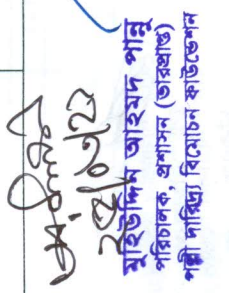 ২৫/০৬/২১
মুহিউদ্দিন আহমদ পান্নু
পরিচালক, প্রশাসন (ভারপ্রাপ্ত)
পল্লী দারিদ্র্য বিমোচন ফাউন্ডেশন